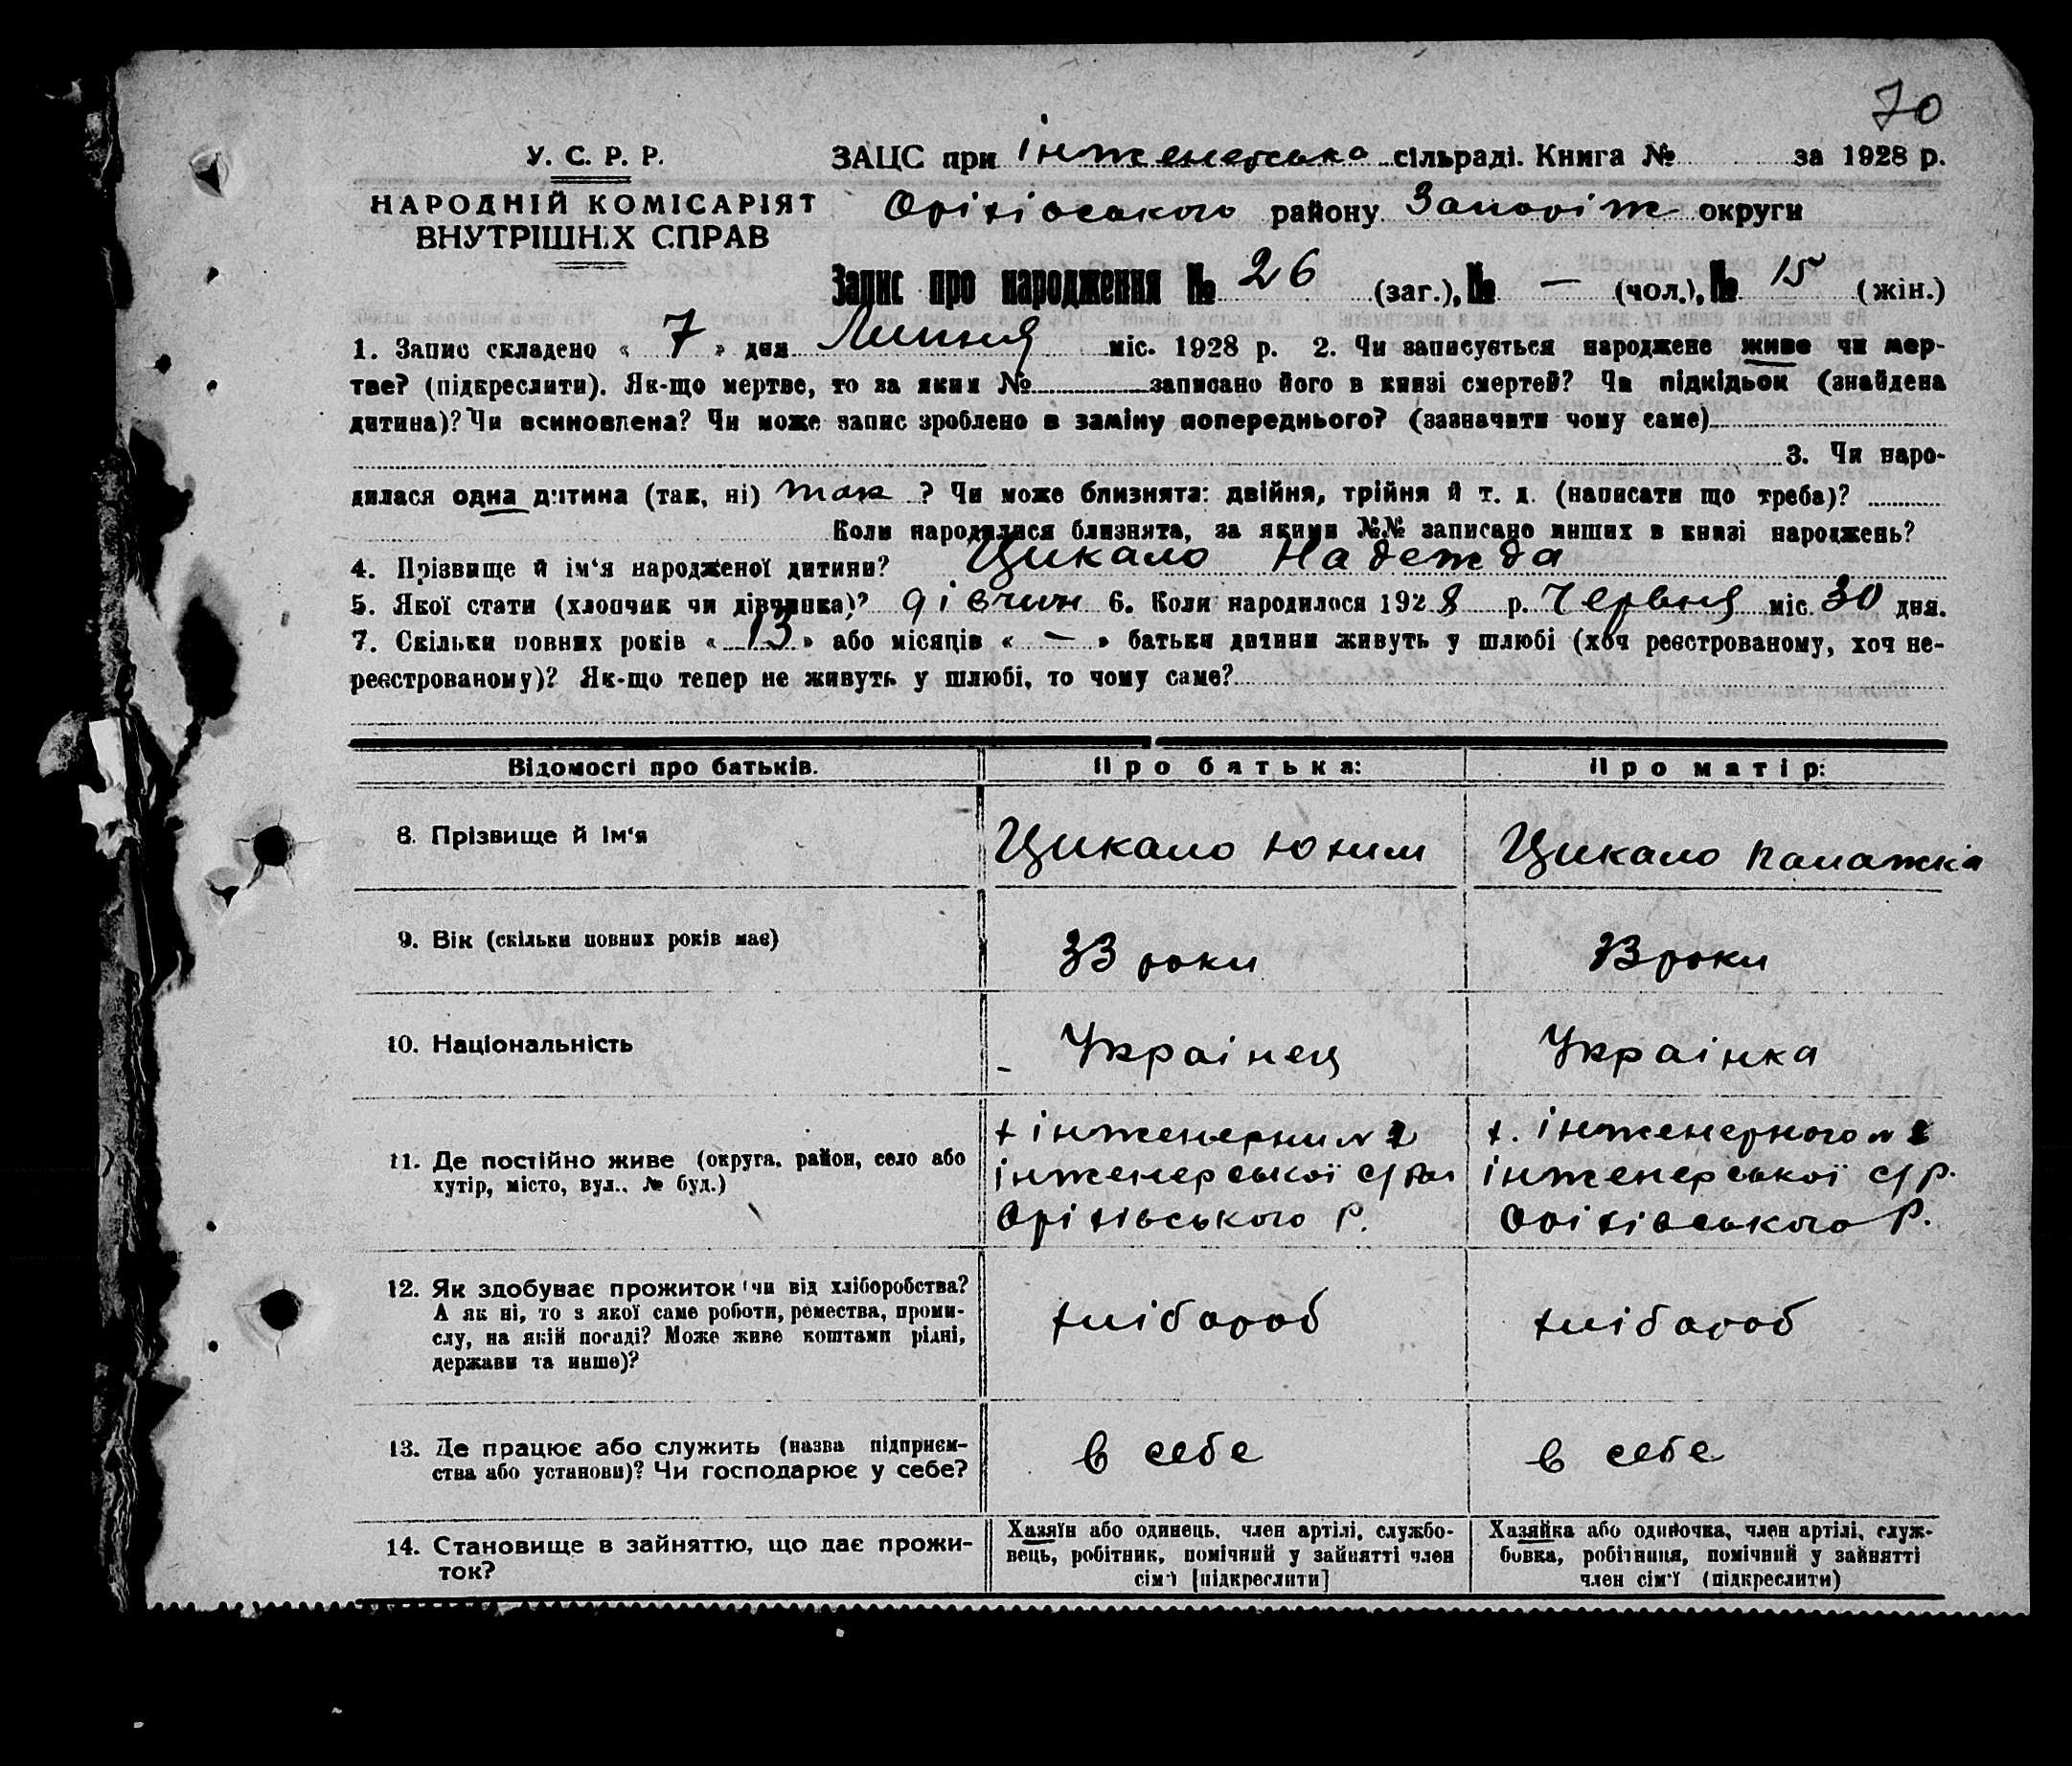 70
У. С. Р. Р.
НАРОДНІЙ КОМІСАРІЯТ
ВНУТРІШНІХ СПРАВ
ЗАЦС при інженерсько сільраді. Книга № за 1928 р.
Оріхівського району Запоріж округи
Запис про народження № 26 (заг.), № — (чол.), № 15 (жін.)
1. Запис складено « 7 » дня Липня міс. 1928 р. 2. Чи записується народжене живе чи мер-
тве? (підкреслити). Як-що мертве, то за яким № записано його в книзі смертей? Чи підкідьок (знайдена
дитина)? Чи всиновлена? Чи може запис зроблено в заміну попереднього? (зазначити чому саме)
3. Чи наро-
дилася одна дитина (так, ні) так ? Чи може близнята: двійня, трійня й т. д. (написати що треба)?
Коли народилися близнята, за якими №№ записано инших в книзі народжень?
4. Прізвище й ім‘я народженої дитини? Цикало Надежда
5. Якої стати (хлопчик чи дівчинка)? дівчин 6. Коли народилося 1928 р. Червня міс. 30 дня.
7. Скільки повних років « 13 » або місяців « — » батьки дитини живуть у шлюбі (хоч реєстрованому, хоч не-
реєстрованому)? Як-що тепер не живуть у шлюбі, то чому саме?
Відомості про батьків. Про батька: Про матір:
8. Прізвище й ім‘я Цикало Юхим Цикало Палажка
9. Вік (скільки повних років має) 33 роки 33 роки
10. Національність Українец Українка
11. Де постійно живе (округа, район, село або
хутір, місто, вул., № буд.)
х інженерний №
інженерської с/ради
Оріхівського Р.
х. інженерного №
інженерської с/р.
Оріхівського Р.
12. Як здобуває прожиток чи від хліборобства?
А як ні, то з якої саме роботи, ремества, проми-
слу, на якій посаді? Може живе коштами рідні,
держави та инше)?
хлібороб хлібороб
13. Де працює або служить (назва підприєм-
ства або установи)? Чи господарює у себе?
в себе в себе
14. Становище в зайняттю, що дає прожи-
ток?
Хазяїн або одинець, член артілі, службо-
вець, робітник, помічний у зайнятті член
сім‘ї [підкреслити]
Хазяйка або одиночка, член артілі, служ-
бовка, робітниця, помічний у зайнятті
член сім‘ї (підкреслити)